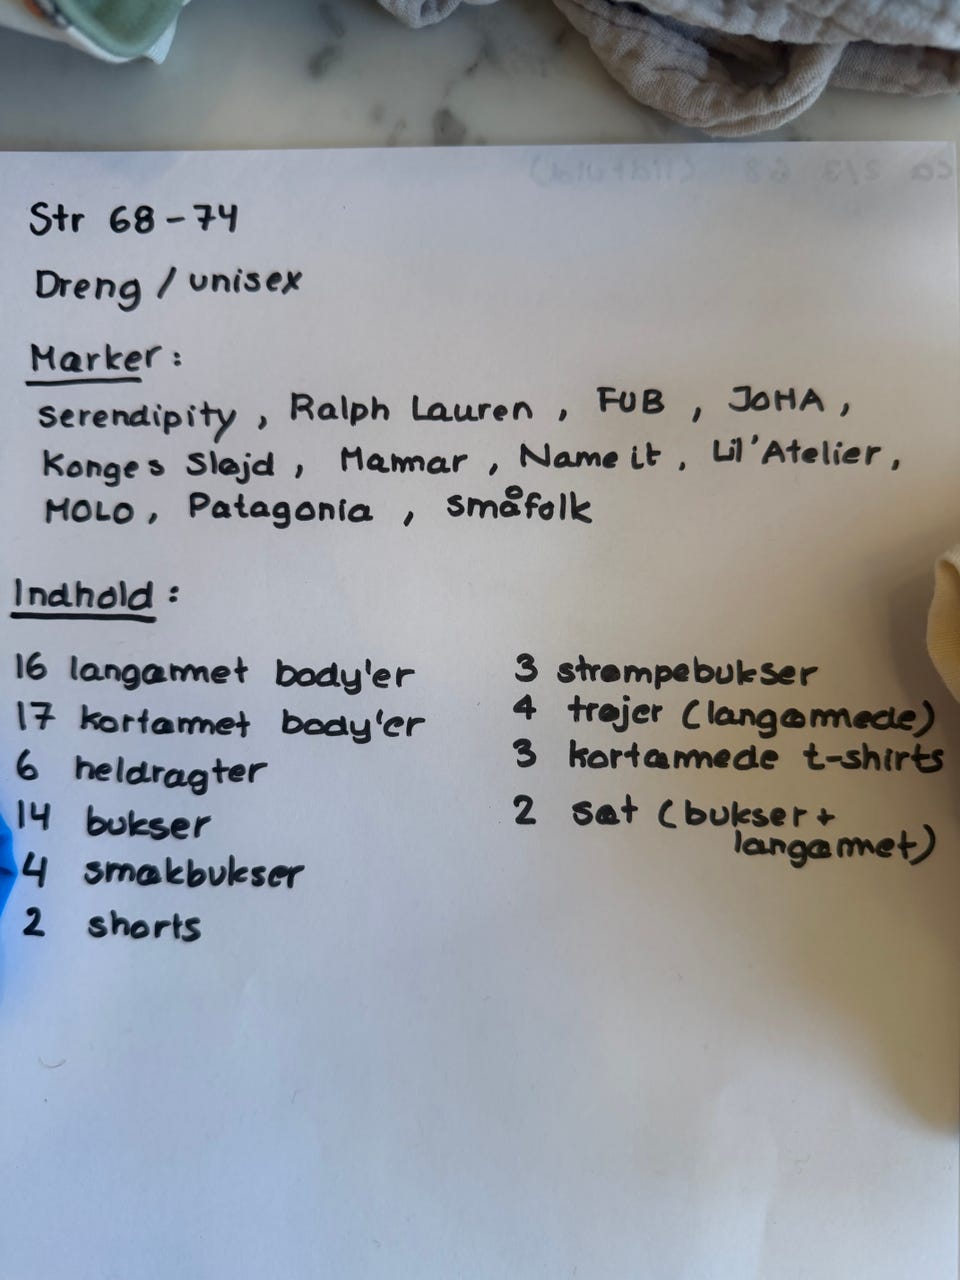 Str 68-74
Dreng / unisex
Marker:
Serendipity, Ralph Lauren, FUB, JOHA,
Konges Sløjd, Marmar, Name it, Lil'Atelier,
MOLO, Patagonia, småfolk
Indhold:
16 langærmet body'er
17 kortærmet body'er
6 heldragter
14 bukser
4 smækbukser
2 shorts
3 strømpebukser
4 trøjer (langærmede)
3 kortærmede t-shirts
2 sæt (bukser +
langærmet)